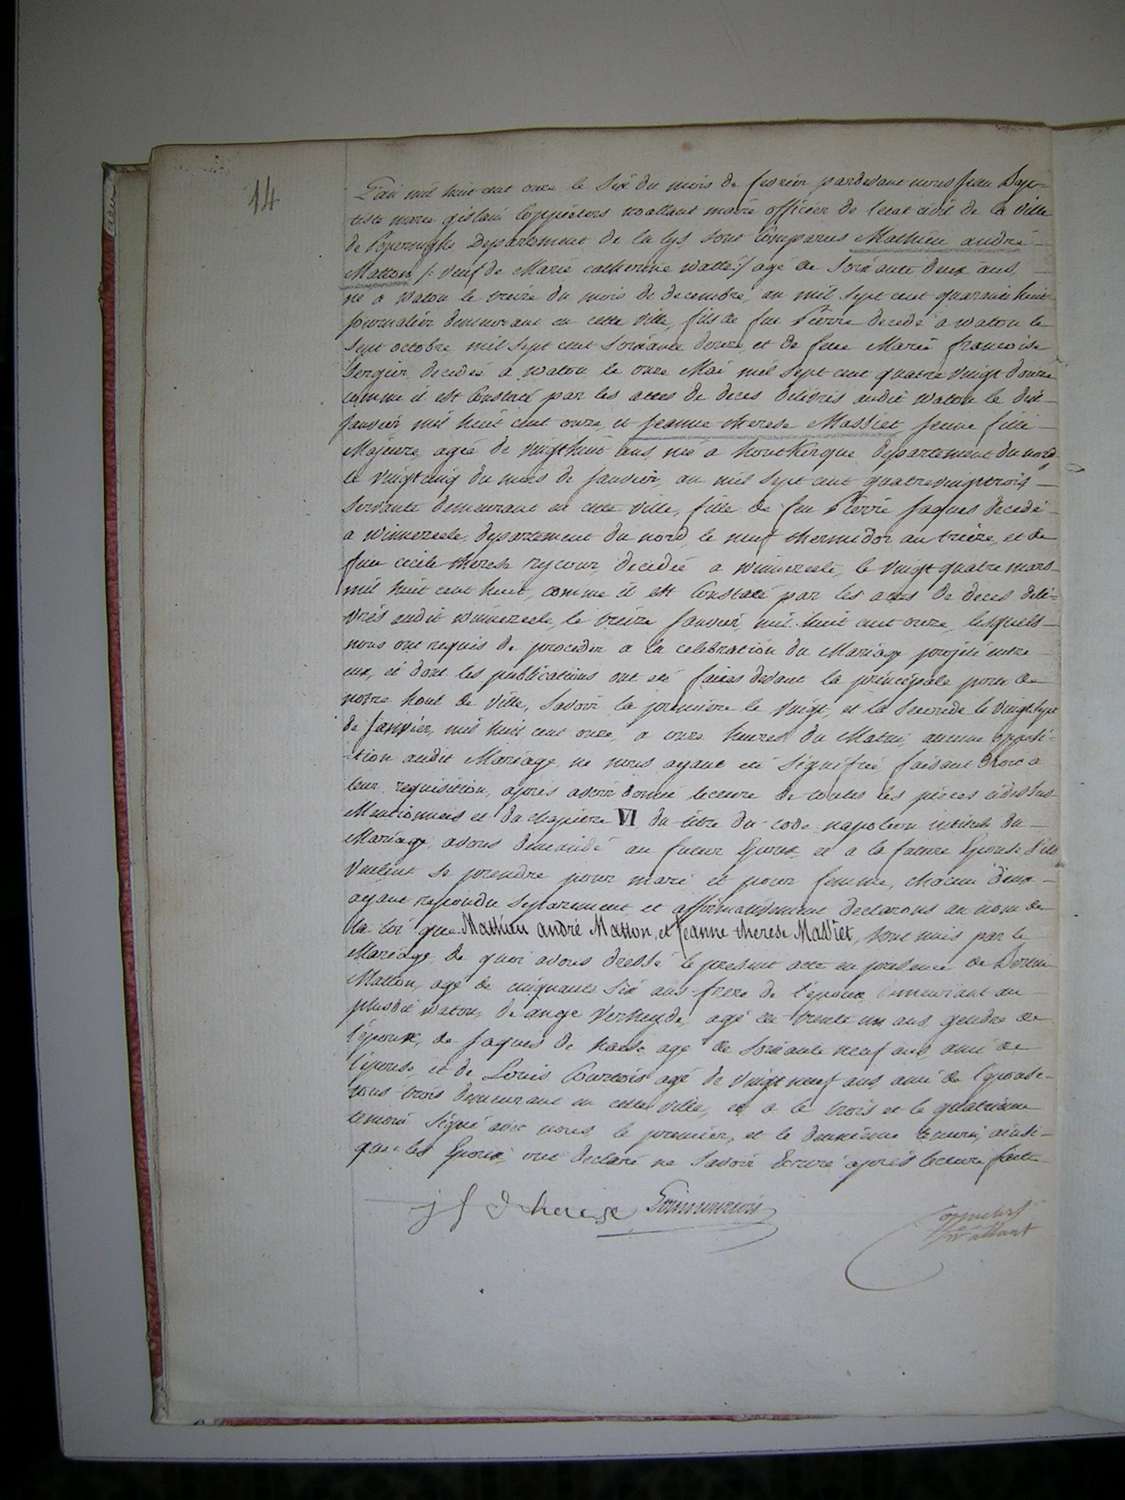 14
L'an mil huit cent onze le six du mois de fevrier pardevant nous Jean Bap-
tiste marie gislain Coppieters wallant maire officier de l'etat civil de la ville
de Poperinghe Departement de la lys sont Comparus Mathieu andré
Matton /: veuf de Marie catherine watte :/ agé de soixante deux ans,
né a watou le treize du mois de decembre, an mil sept cent quarante huit
journalier demeurant en cette ville, fils de feu Pierre decedé a watou le
sept octobre mil sept cent soixante douze et de feue Marie francoise
decedée a watou le onze Mai mil sept cent quatre vingt douze
comme il est Constaté par les actes de deces délivrés audit watou le dix
Janvier mil huit cent onze, et Jeanne therese Massiet, jeune fille
Majeure, agée de vingthuit ans, née a houtkerque département du nord,
le vingt cinq du mois de janvier, an mil sept cent quatrevingtrois
servante demeurant en cette ville, fille de feu Pierre Jaques decedé
a winnezeele, departement du nord, le neuf thermidor an treize, et de
feue cecile therese rycour, decedée a winnezeele, le vingt quatre mars
mil huit cent huit, comme il est Constaté par les actes de deces déli-
vrés audit winnezeele, le treize Janvier mil huit cent onze, lesquels
nous ont requis de proceder a la celebration du Mariage projeté entre
eux, et dont les publications ont été faites devant la principale porte de
notre hotel de ville, savoir la première le vingt, et la seconde le vingt sept
de Janvier, mil huit cent onze, a onze heures du Matin, aucune opposi-
tion audit Mariage ne nous ayant été signifiée faisant droit a
leur requisition, après avoir donné lecture de toutes les pièces cidessus
Mentionnées et du chapitre VI du titre du code napoleon intitulé du
Mariage, avons demandé au futur Epoux, et a la future Epouse s'ils
veulent se prendre pour mari et pour femme, chacun d'eux
ayant repondu separement et affirmativement declarons au nom de
la loi que Mathieu andré Matton, et Jeanne therese Massiet, sont unis par le
Mariage, de quoi avons dressé le present acte en presence de
Matton, agé de cinquante six ans frère de l'époux demeurant au
plusdit watou, de ange Verheyde, agé de trente un ans, gendre de
l'époux, de Jaques de haese agé de soixante neuf ans ami de
l'épouse, et de Louis Courtois agé de vingt neuf ans, ami de l'épouse
tous trois demeurant en cette ville, et a le trois et le quatrième
temoin signé avec nous, le premier, et le deuxième temoin, ainsi
que les Epoux, ont declaré ne savoir Ecrire après lecture faite
Coppieters
wallant